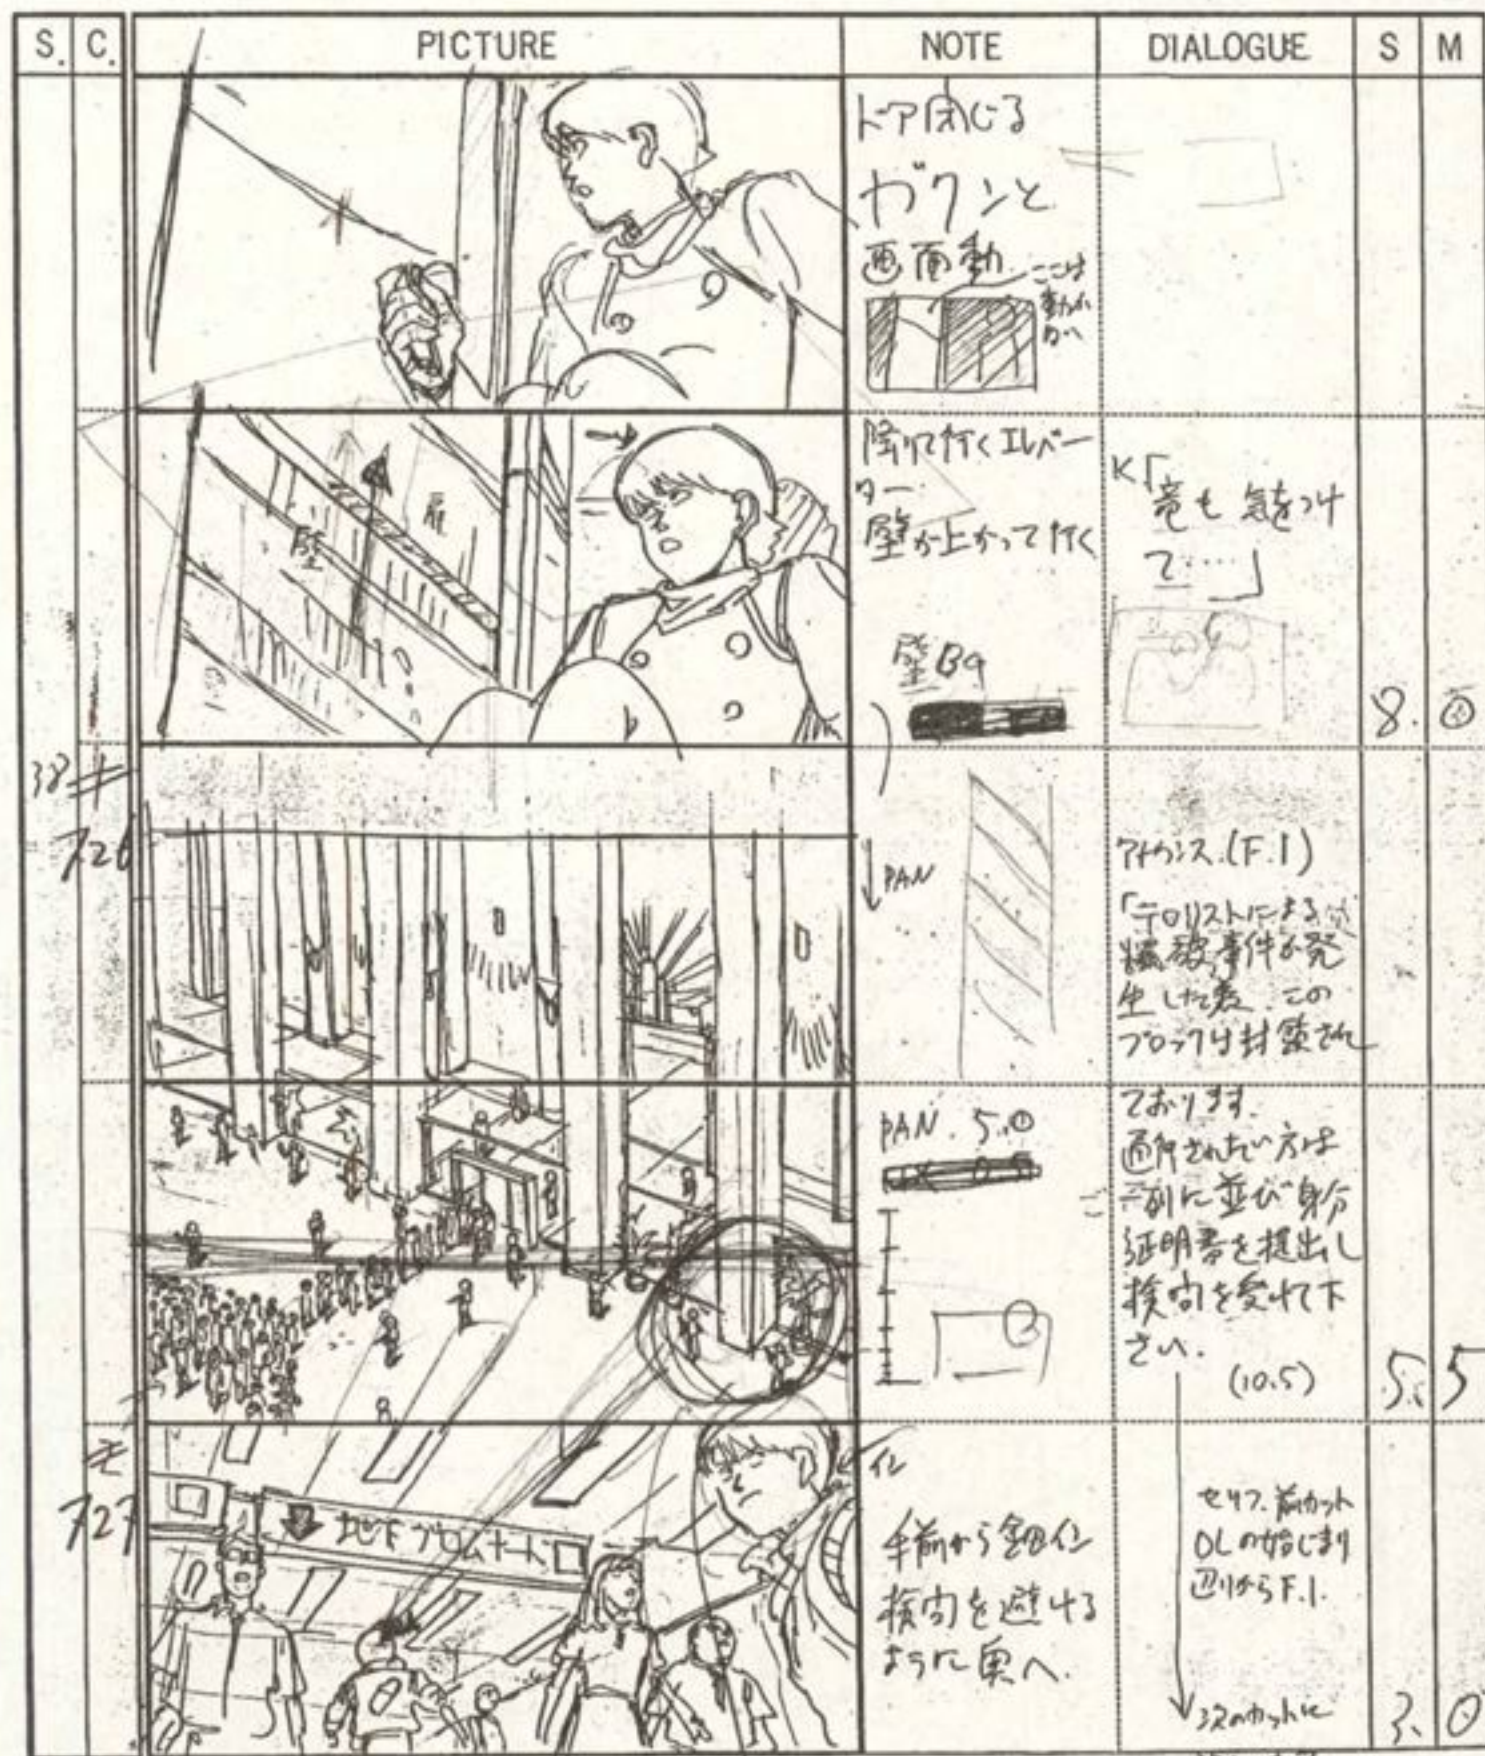 S. C. PICTURE NOTE DIALOGUE S M
ドア閉じる
ガクンと
画面動
ここは
動か
ない
壁
扉
降りて行くエレベー
ター
壁が上がって行く
壁BG
K「竜も気をつけ
て……」
8. 0
38
726
PAN
アナウンス.(F.I)
「テロリストによる
爆破事件が発
生した為、この
ブロックは封鎖され
PAN. 5.0
ております。
通行されたい方は
一列に並び身分
証明書を提出し
検問を受けて下
さい。
(10.5)
5. 5
727
地下プロムナード
イン
手前から イン
検問を避ける
ように奥へ.
セリフ.前カット
OLの始まり
辺りからF.I.
次のカットに
3. 0